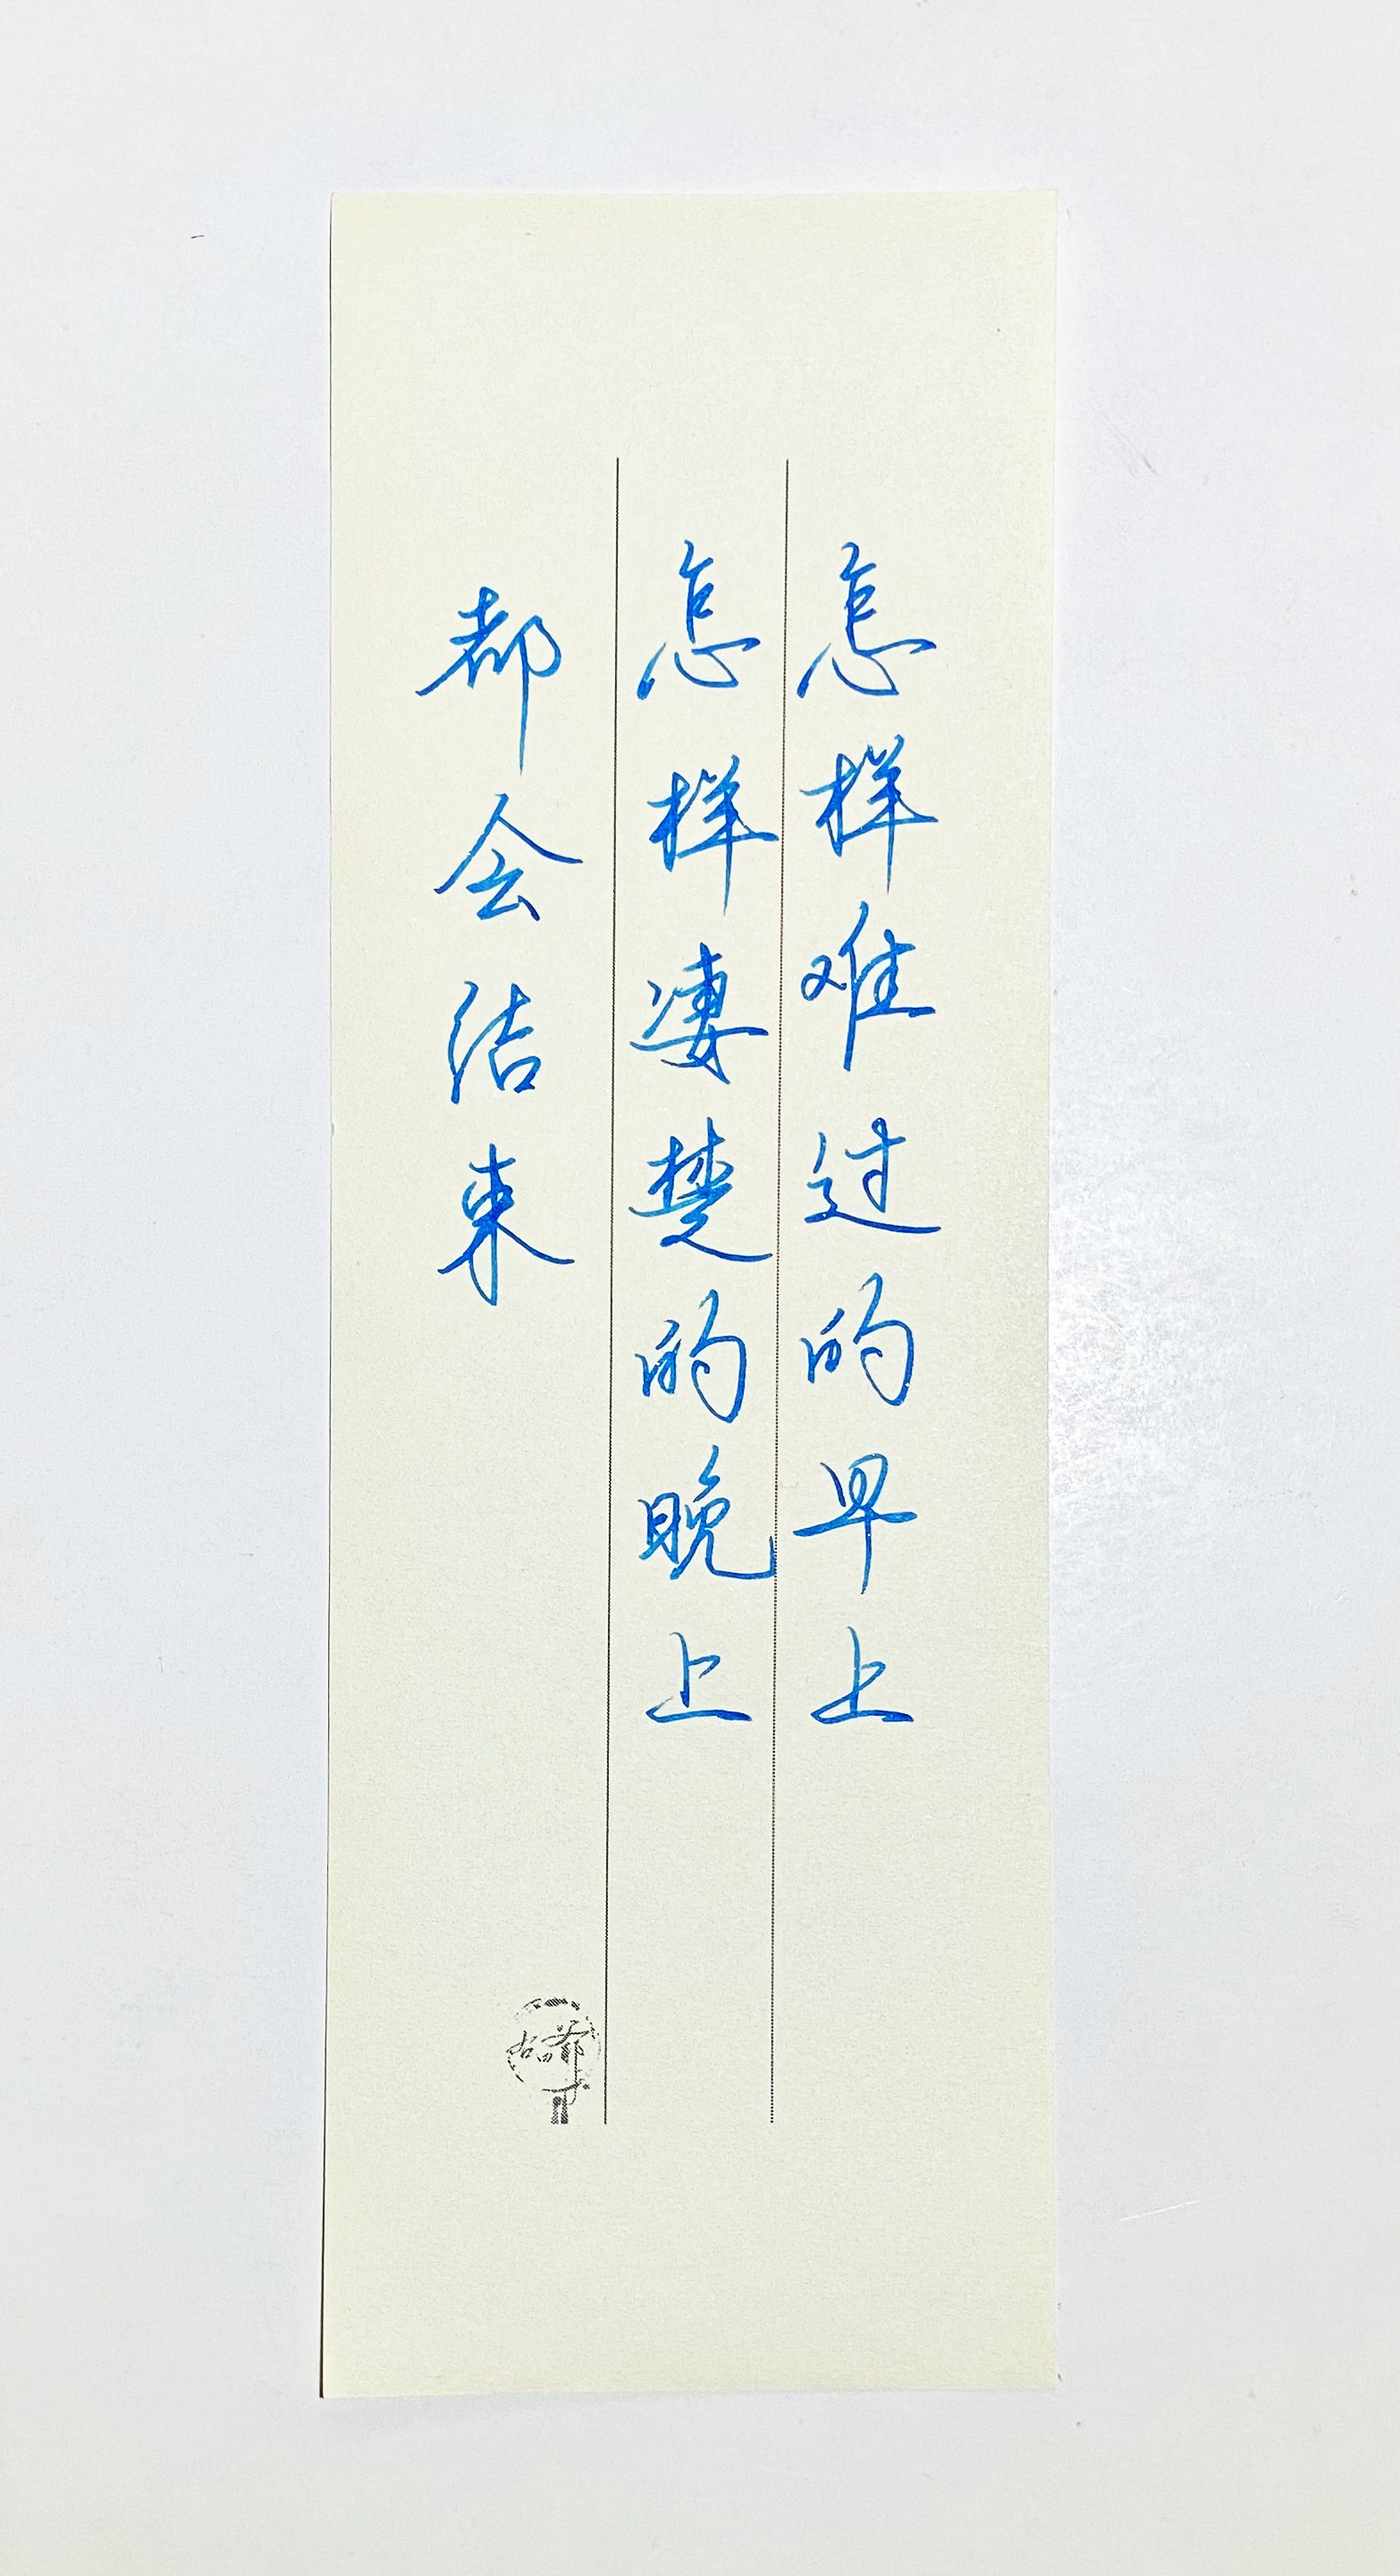 怎样难过的早上
怎样凄楚的晚上
都会结束